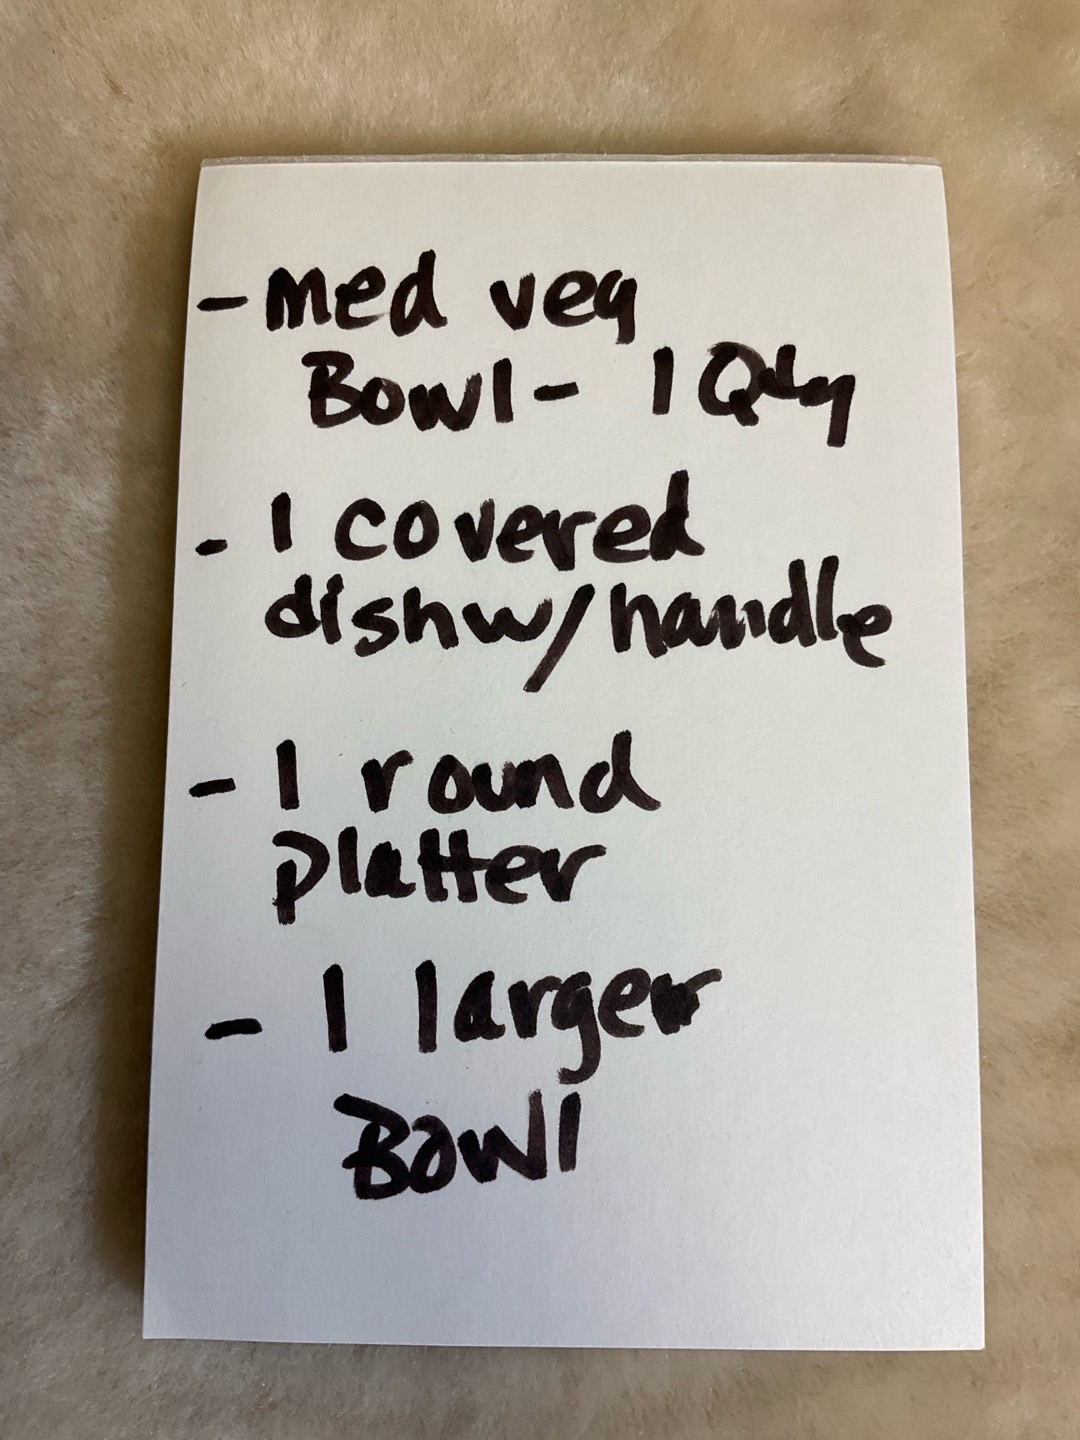 - med veg
Bowl - 1 Qty
- 1 covered
dish w/handle
- 1 round
platter
- 1 larger
Bowl